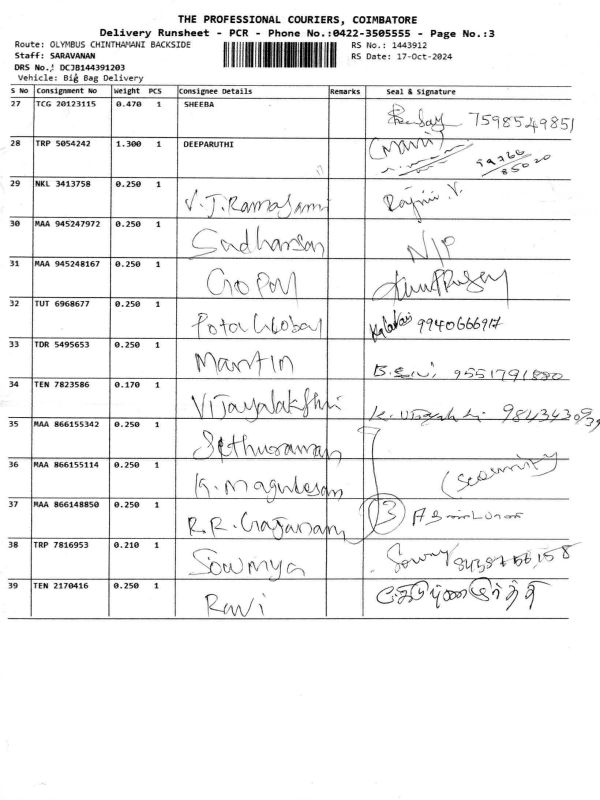 THE PROFESSIONAL COURIERS, COIMBATORE
Delivery Runsheet - PCR - Phone No.:0422-3505555 - Page No.:3
Route: OLYMBUS CHINTHAMANI BACKSIDE RS No.: 1443912
Staff: SARAVANAN RS Date: 17-Oct-2024
DRS No.: DCJB144391203
Vehicle: Big Bag Delivery
S No Consignment No Weight PCS Consignee Details Remarks Seal & Signature
27 TCG 20123115 0.470 1 SHEEBA 7598549851
28 TRP 5054242 1.300 1 DEEPARUTHI (Mani)
99766
85020
29 NKL 3413758 0.250 1 V.J.Ramasami Rajini.V.
30 MAA 945247972 0.250 1 Sadharsan N/P
31 MAA 945248167 0.250 1 Gopal
32 TUT 6968677 0.250 1 Potal Global 9940666917
33 TDR 5495653 0.250 1 Martin 9551791880
34 TEN 7823586 0.170 1 Vijayalakshmi
35 MAA 866155342 0.250 1 Sethuraman
36 MAA 866155114 0.250 1 K. Magulesan (Security)
37 MAA 866148850 0.250 1 R.R. Gajanam 3
38 TRP 7816953 0.210 1 Sowmya Sowmy
39 TEN 2170416 0.250 1 Ravi